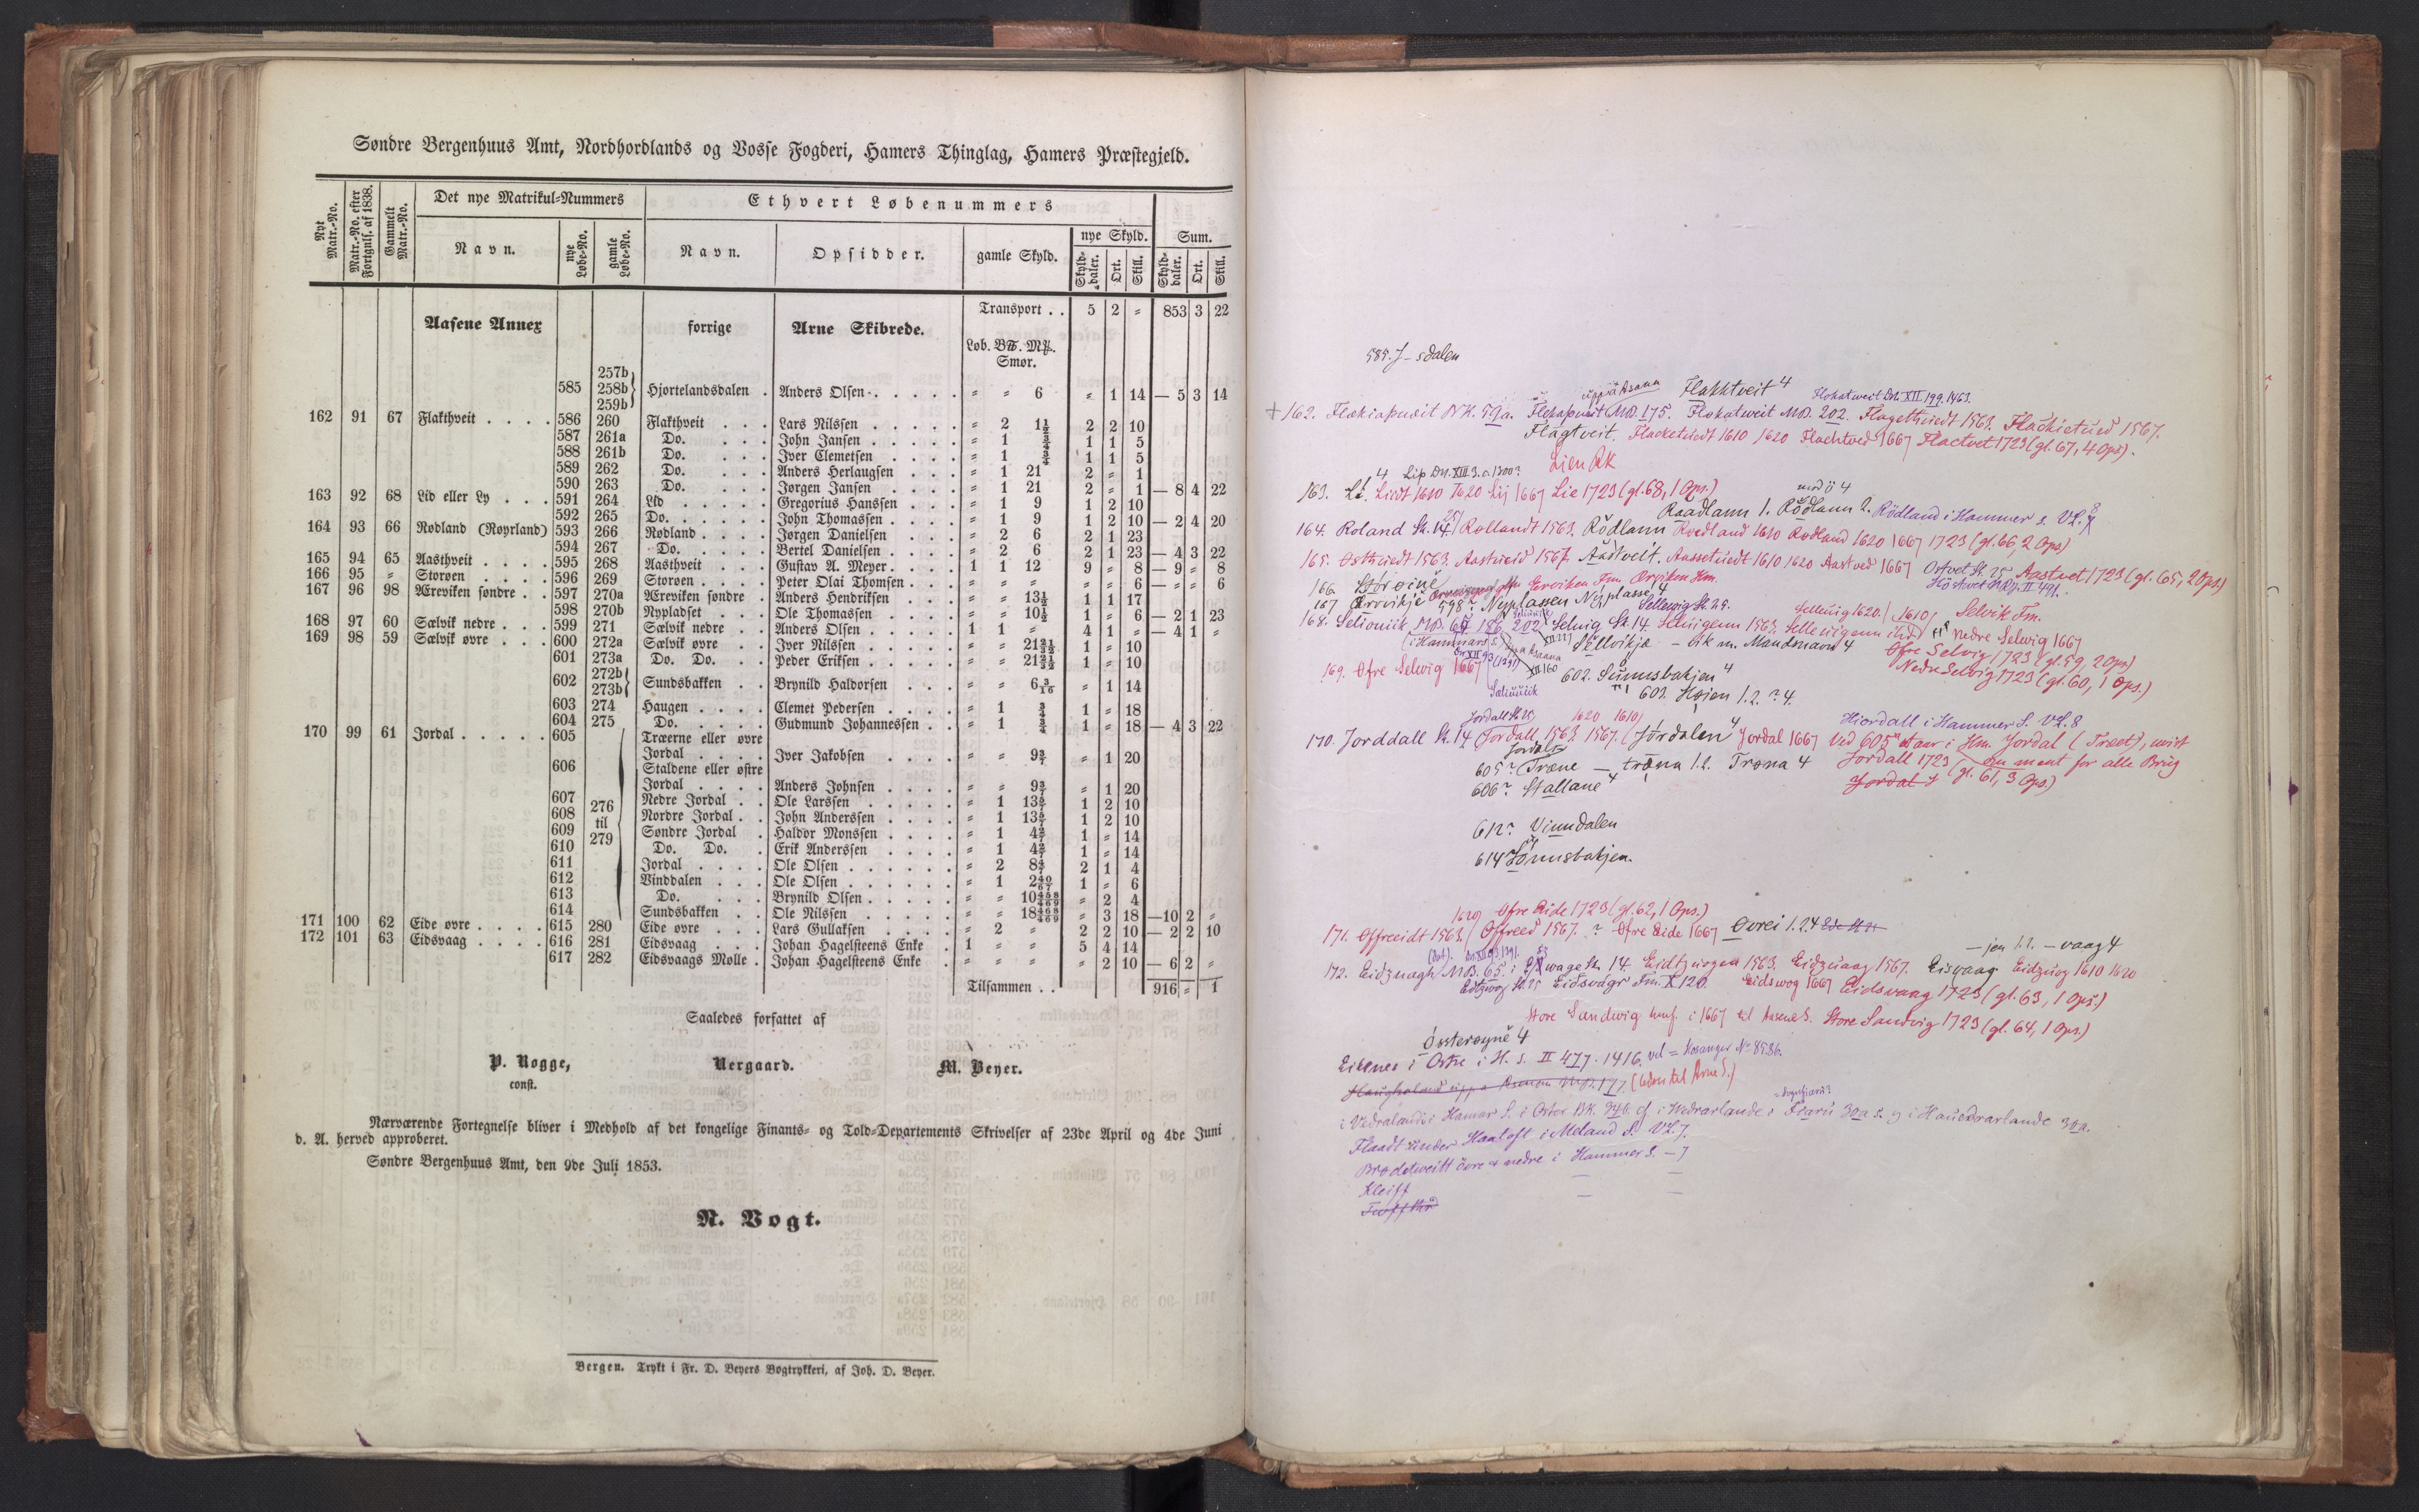 Søndre Bergenhuus Amt, Nordhordlands og Vosse Fogderi, Hamers Thinglag, Hamers Præstegjeld.
Nyt Matr.-No.
Matr.-No. efter Fortegnls. af 1838.
Gammelt Matr.-No.
Det nye Matrikul-Nummers
Ethvert Løbenummers
Navn.
nye Løbe-No.
gamle Løbe-No.
Navn.
Opsidder.
gamle Skyld.
nye Skyld.
Sum.
Skylddaler. Ort. Skill. Skylddaler. Ort. Skill.
Transport . . 5 2 " 853 3 22
Aasene Annex forrige Arne Skibrede.
Smør.
585 257b 258b 259b Hjortelandsdalen . Anders Olsen . . . . . " " 6 " 1 14 — 5 3 14
162 91 67 Flakthveit . . . . 586 260 Flakthveit . . . Lars Nilssen . . . . . " 2 1½ 2 2 10
587 261a Do. . . . John Jansen . . . . . " 1 ¾ 1 1 5
588 261b Do. . . . Iver Clemetsen . . . . " 1 ¾ 1 1 5
589 262 Do. . . . Anders Herlaugsen . . . " 1 21 2 " 1
590 263 Do. . . . Jørgen Jansen . . . . " 1 21 2 " 1 — 8 4 22
163 92 68 Lid eller Ly . . . 591 264 Lid . . . . . Gregorius Hanssen . . . " 1 9 1 2 10
592 265 Do. . . . . . John Thomassen . . . . " 1 9 1 2 10 — 2 4 20
164 93 66 Rødland (Røyrland) 593 266 Rødland . . . . Jørgen Danielsen . . . " 2 6 2 1 23
594 267 Do. . . . . Bertel Danielsen . . . . " 2 6 2 1 23 — 4 3 22
165 94 65 Aasthveit . . . . 595 268 Aasthveit . . . Gustav A. Meyer. . . . 1 1 12 9 " 8 — 9 " 8
166 95 " Storøen . . . . 596 269 Storøen . . . . Peter Olai Thomsen . . . " " " " " 6 — " " 6
167 96 98 Æreviken søndre . . 597 270a Æreviken søndre . Anders Hendriksen . . . " " 13½ 1 1 17
598 270b Nypladset . . . Ole Thomassen . . . . " " 10½ 1 " 6 — 2 1 23
168 97 60 Sælvik nedre . . . 599 271 Sælvik nedre . . Anders Olsen . . . . . 1 1 " 4 1 " — 4 1 "
169 98 59 Sælvik øvre . . . 600 272a Sælvik øvre . . Iver Nilssen . . . . . " " 21 21/32 1 " 10
601 273a Do. Do. . . Peder Eriksen . . . . . " " 21 21/32 1 " 10
602 272b 273b Sundsbakken . . Brynild Haldorsen . . . " " 6 3/16 " 1 14
603 274 Haugen . . . . Clemet Pedersen . . . . " 1 ¾ 1 " 18
604 275 Do. . . . . Gudmund Johannessen . . " 1 ¾ 1 " 18 — 4 3 22
170 99 61 Jordal . . . . . 605 Træerne eller øvre
Jordal . . . . Iver Jakobsen . . . . " " 9 3/7 " 1 20
606 Staldene eller østre
Jordal . . . . Anders Johnsen . . . . " " 9 3/7 " 1 20
607 276 til 279 Nedre Jordal . . Ole Larssen . . . . . " 1 13 5/7 1 2 10
608 Nordre Jordal . . John Anderssen . . . . " 1 13 5/7 1 2 10
609 Søndre Jordal . Haldor Monssen . . . . " 1 4 2/7 1 " 14
610 Do. Do. . Erik Anderssen . . . . " 1 4 2/7 1 " 14
611 Jordal . . . . Ole Olsen . . . . . . " 2 8 4/7 2 1 4
612 Vinddalen . . . Ole Olsen . . . . . . " 1 2 40/67 1 " 6
613 Do. . . . Brynild Olsen . . . . . " " 10 458/469 " 2 4
614 Sundsbakken . . Ole Nilssen . . . . . " " 18 468/469 " 3 18 — 10 2 "
171 100 62 Eide øvre . . . . 615 280 Eide øvre . . . Lars Gullaksen . . . . " 2 " 2 2 10 — 2 2 10
172 101 63 Eidsvaag . . . . 616 281 Eidsvaag . . . Johan Hagelsteens Enke . 1 " " 5 4 14
617 282 Eidsvaags Mølle . Johan Hagelsteens Enke . " " " " 2 10 — 6 2 "
Tilsammen . . 916 " 1
Saaledes forfattet af
P. Rogge, Uergaard. M. Beyer.
const.
Nærværende Fortegnelse bliver i Medhold af det kongelige Finants- og Told-Departements Skrivelser af 23de April og 4de Juni
d. A. herved approberet.
Søndre Bergenhuus Amt, den 9de Juli 1853.
N. Vogt.
Bergen. Trykt i Fr. D. Beyers Bogtrykkeri, af Joh. D. Beyer.
585. J-sdalen
Flakktveit 4 Flokatweit Dn. XII 199. 1463.
+ 162. BK. 59a. MB. 175. Flokatweit MB. 202. 1563. Flackietued 1567.
Flagtveit. Flacketuedt 1610 1620 Flachtved 1667 Flactvet 1723 (gl. 67, 4 Ops).
4 Lip Dn. XIII 3. c. 1300? Lien BK
163. Li. Liedt 1610 1620 Lij 1667 Lie 1723 (gl. 68, 1 Ops.)
Raadlann 1. Rödlann 2. Rödland i Hammer s. VL. 8
164. Roland St. 14. Rollandt 1563. Rödlann Roedland 1610 Rodland 1620 1667 1723 (gl. 66, 2 Ops)
165. Osthuedt 1563. Aastueid 1567. Aastveit. Aassetuedt 1610 1620 Aastved 1667 Ostvet St. 25 Aastvet 1723 (gl. 65, 2 Ops)
166. Störöině
167 Ærvikje Erviken Fm. Ørviken Hm.
598? Nyplassen Nyplasse 4
Sellewig St. 29. Selleuig 1620. 1610 Selvik Fm.
168. Seliouiik MB. 186. 202 Seluig St. 14 Seluigenn 1563. Nedre Selwig 1667
Sellvikja — ik m. Mandsnavn 4 Øfre Selvig 1723 (gl. 59, 2 Ops)
169. Øfre Selwig 1667 602. Sunnsbakjen 4 Nedre Selvig 1723 (gl. 60, 1 Ops.)
603. Høien 1. 2. ? 4.
Jordall St. 25 1620 1610 Hiordall i Hammer S. VL. 8
170. Jorddall St. 14 Jordall 1563. 1567. Jördalen 4 Jordal 1667 Ved 605 staar i Hm. Jordal (Træet), uvist
605? Træne — træna 1. 2. Træna 4 Jordall 1723 om ment for alle Brug
606? Stallane 4 Jordal (gl. 61, 3 Ops.)
612? Vinndalen
614 Sönnsbakjen.
1620 Øfre Eide 1723 (gl. 62, 1 Ops.)
171. Offreeidt 1563. Offreed 1567. ? Øfre Eide 1667 Øvrei 1. 2. 4
— jen 1. 2. — vaag 4
172. Eidzuagh MB. 65. St. 14. Eidtzuogen 1563. Eidzuaag 1567. Eisvaag Eidzuog 1610 1620
Eidzwog St. 25 Eidsvågr Fm. X 120. Eidswog 1667 Eidsvaag 1723 (gl. 63, 1 Ops.)
Store Sandwig i 1667 til Aasene S. Store Sandvig 1723 (gl. 64, 1 Ops.)
Össteröyně 4
Eikenes i Ostre i H. s. II 477. 1416. vel = Hosanger No 85. 86.
(udentil Arne S.)
i Vedralandi i Hamar S. i Oster BK. 34b. cf. i Wedrarlande i 30a
Flaadt under Haatoft i Meland S. VL. 7.
Brodetweitt övre & nedre i Hammer S. — 7
Kleiff — —